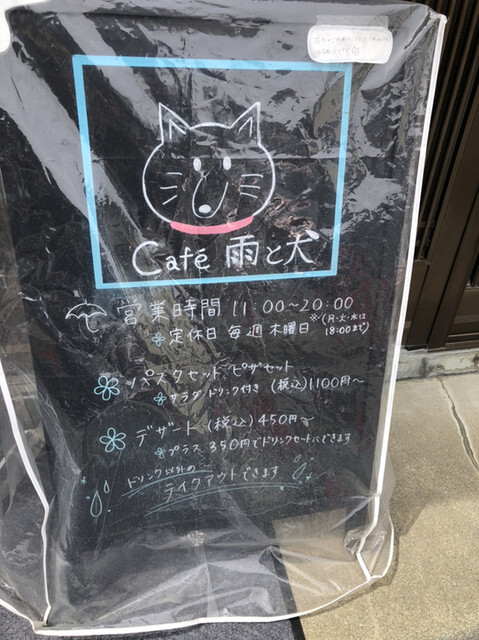 Café 雨と犬
営業時間 11:00~20:00
定休日 毎週 木曜日 ※(月・火・水は
18:00まで)
パスタセット ピザセット
サラダ ドリンク付き (税込)1100円~
デザート (税込)450円~
プラス 350円でドリンクセットにできます
ドリンク以外の
テイクアウトできます